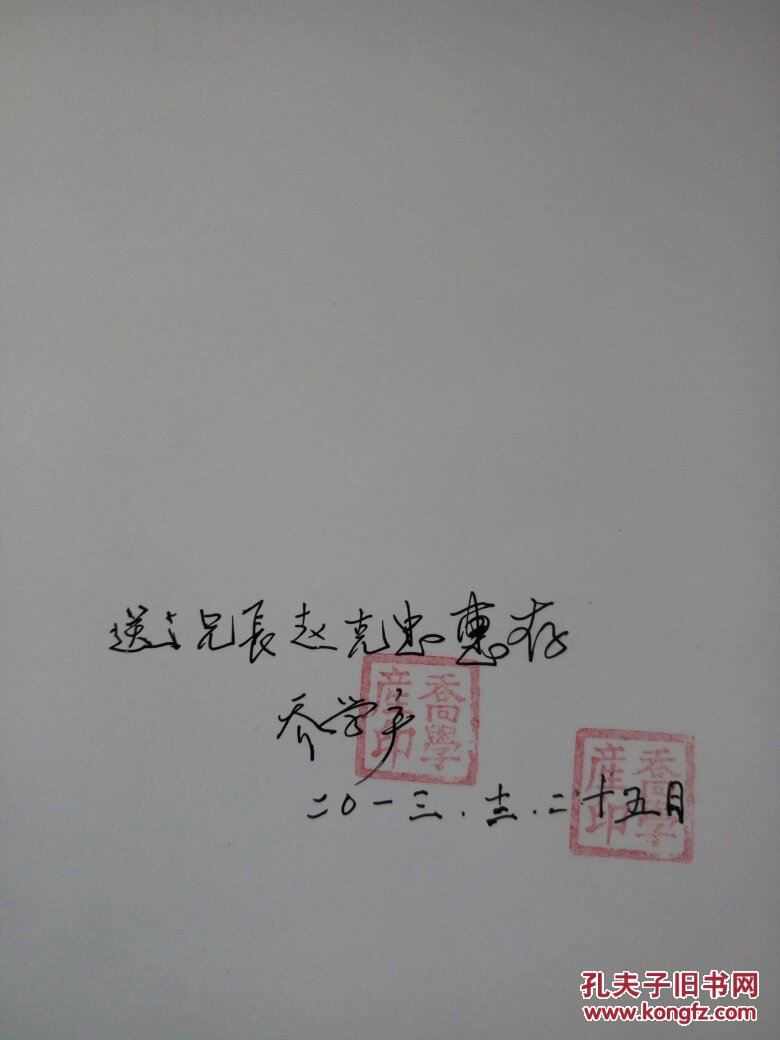 送兄長赵克忠惠存
乔学产
喬學産印
二〇一三.十二.二十五日
喬學産印
孔夫子旧书网
www.kongfz.com